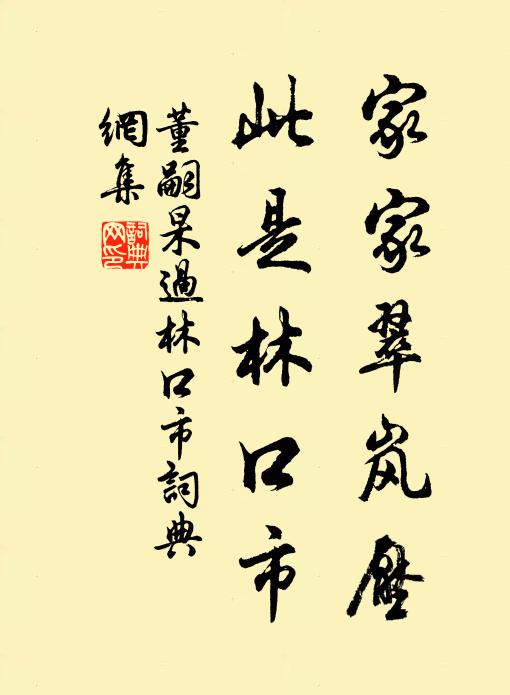 家家翠岚壓
此是林口市
董嗣杲過林口市詞典
網集
詞典網印